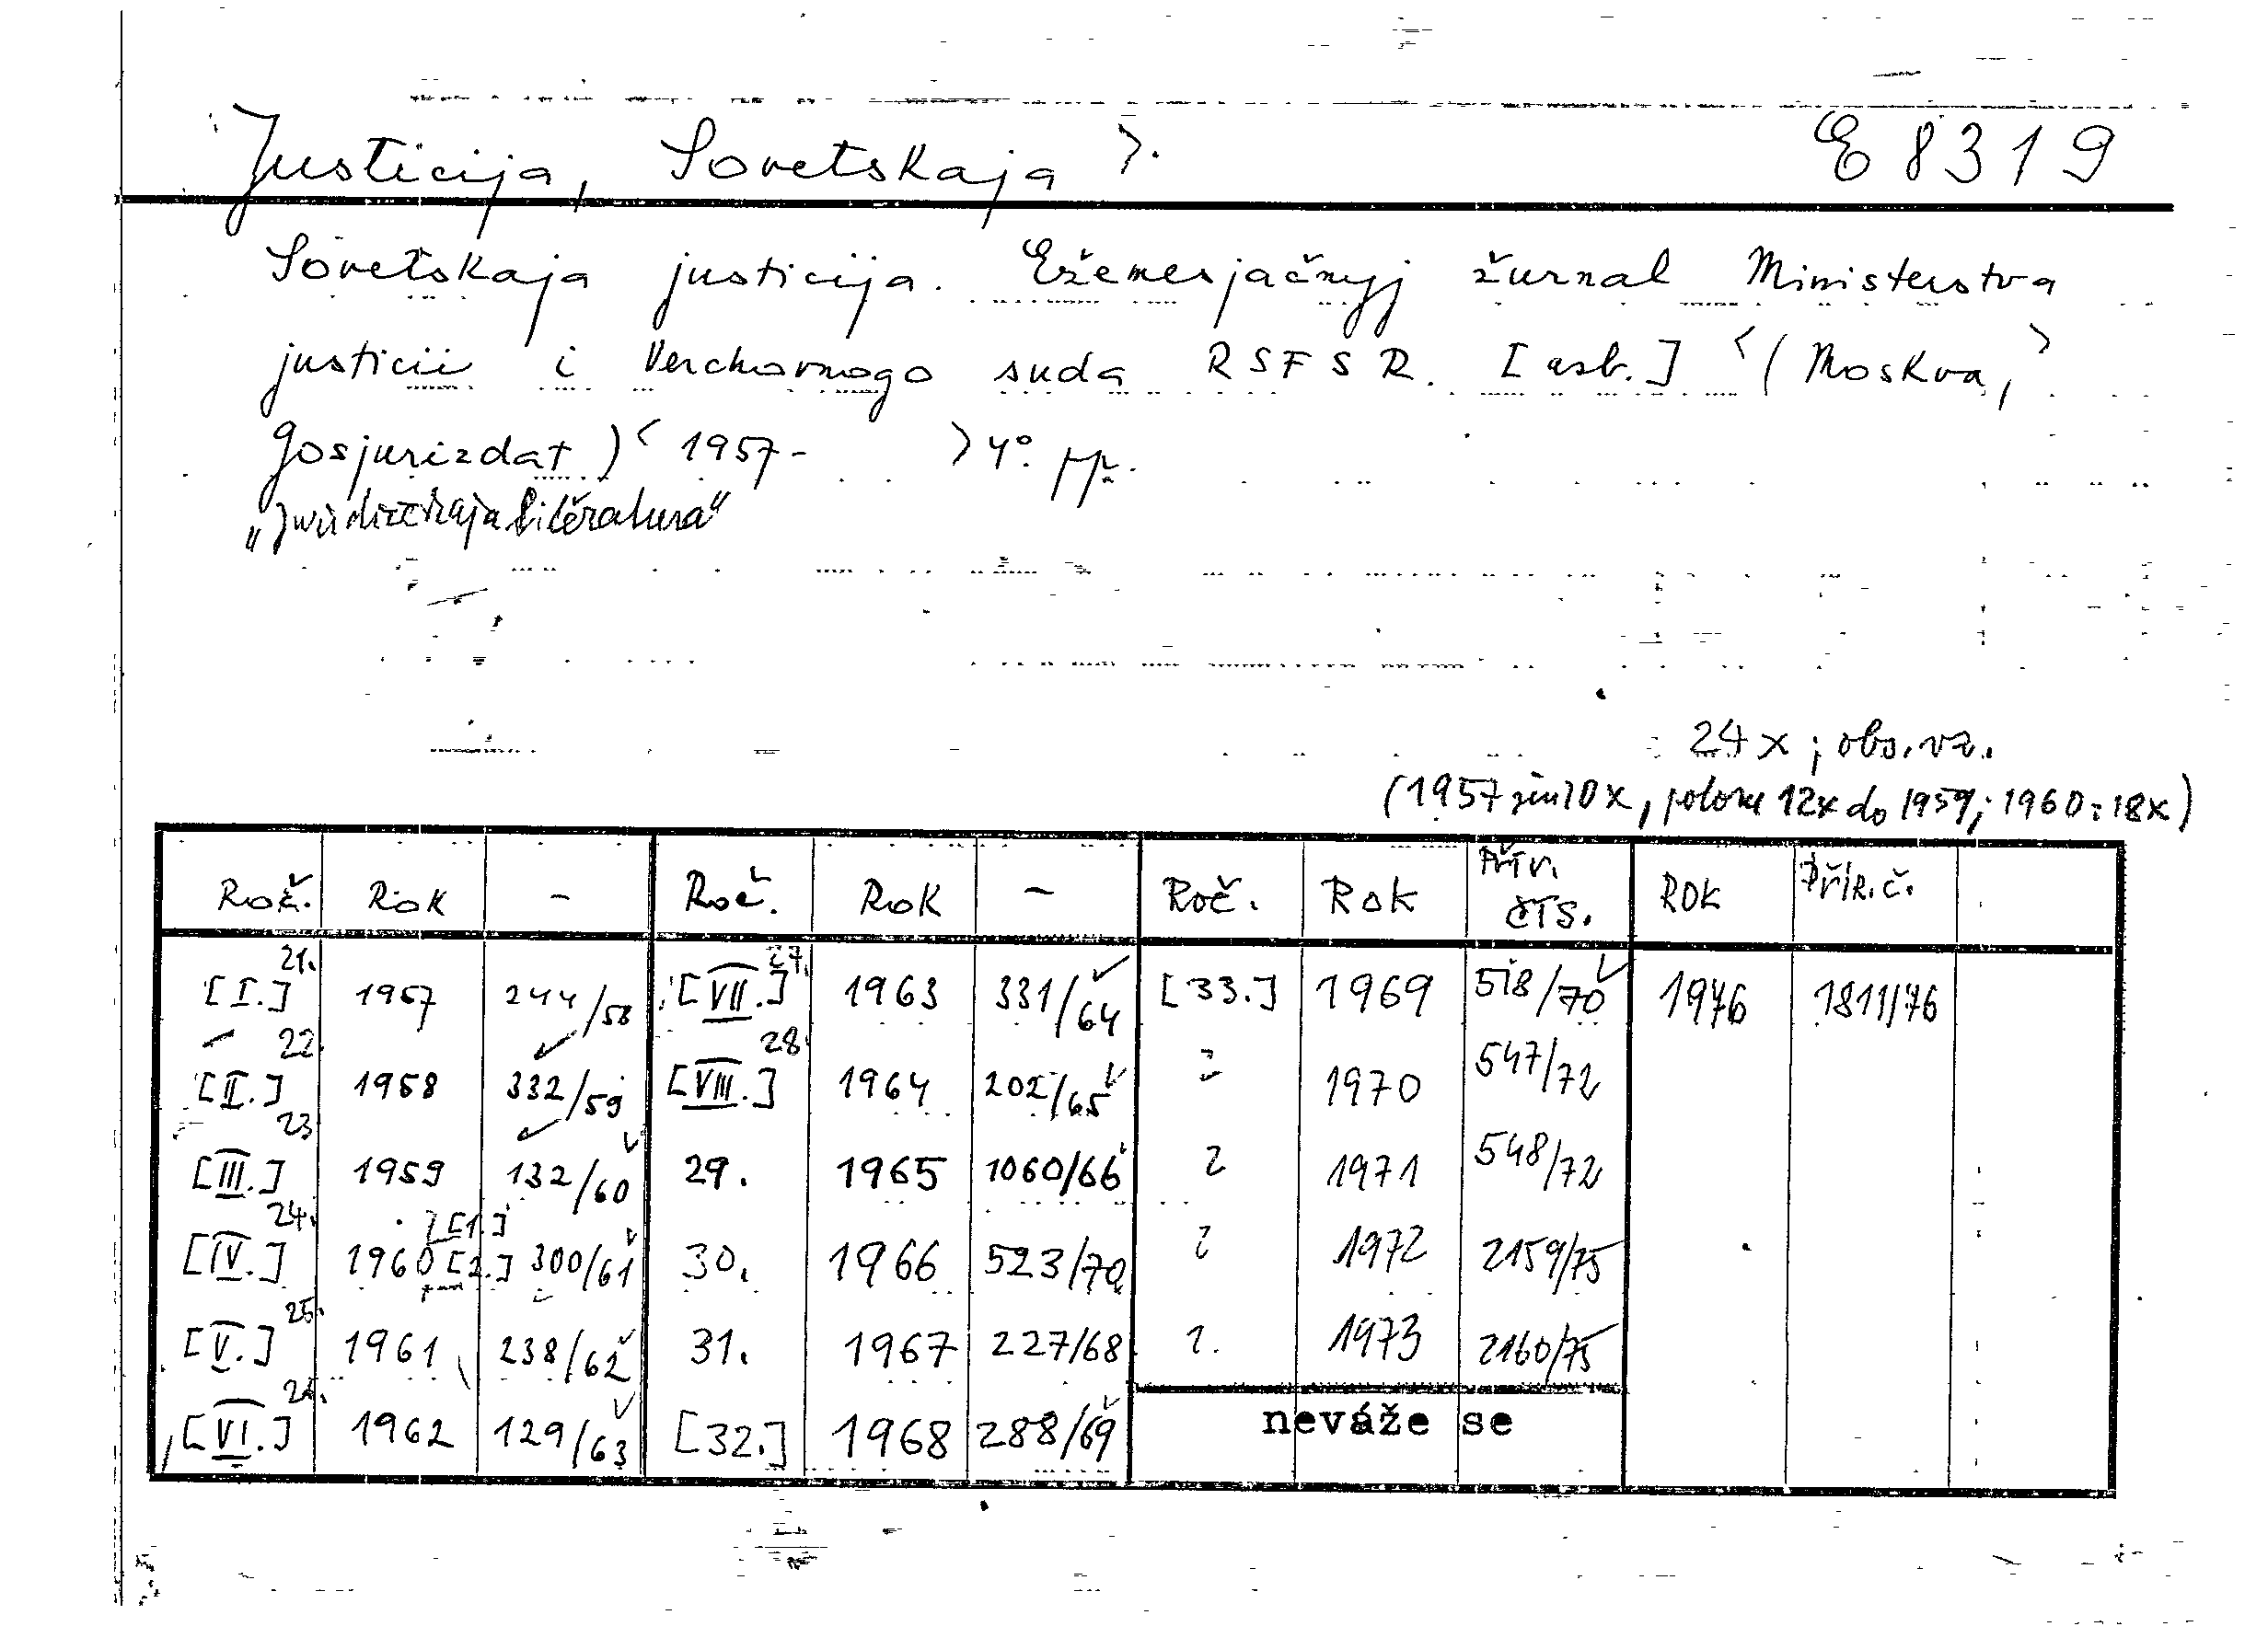 Justicija, Sovetskaja >. E 8319
Sovetskaja justicija. Ežemesjačnyj žurnal Ministerstva
justicii i Verchovnogo suda RSFSR. [asb.] <(Moskva,>
Gosjurizdat)< 1957- >4°.
24x; obs. vz.
(1957 jen 10x, potom 12x do 1959; 1960: 18x)
Roč. Rok - Roč. Rok - Roč. Rok Přír. čís. ROK PŘÍR.č.
[I.] 21. 1957 244/58 [VII.] 27. 1963 331/64 [33.] 1969 518/70 1976 1811/76
[II.] 22. 1958 332/59 [VIII.] 28. 1964 202/65 ? 1970 547/72
[III.] 23. 1959 132/60 29. 1965 1060/66 ? 1971 548/72
[IV.] 24. 1960 [1.] [2.] 300/61 30. 1966 523/70 ? 1972 2159/75
[V.] 25. 1961 238/62 31. 1967 227/68 ? 1973 2160/75
[VI.] 26. 1962 129/63 [32.] 1968 288/69 neváže se